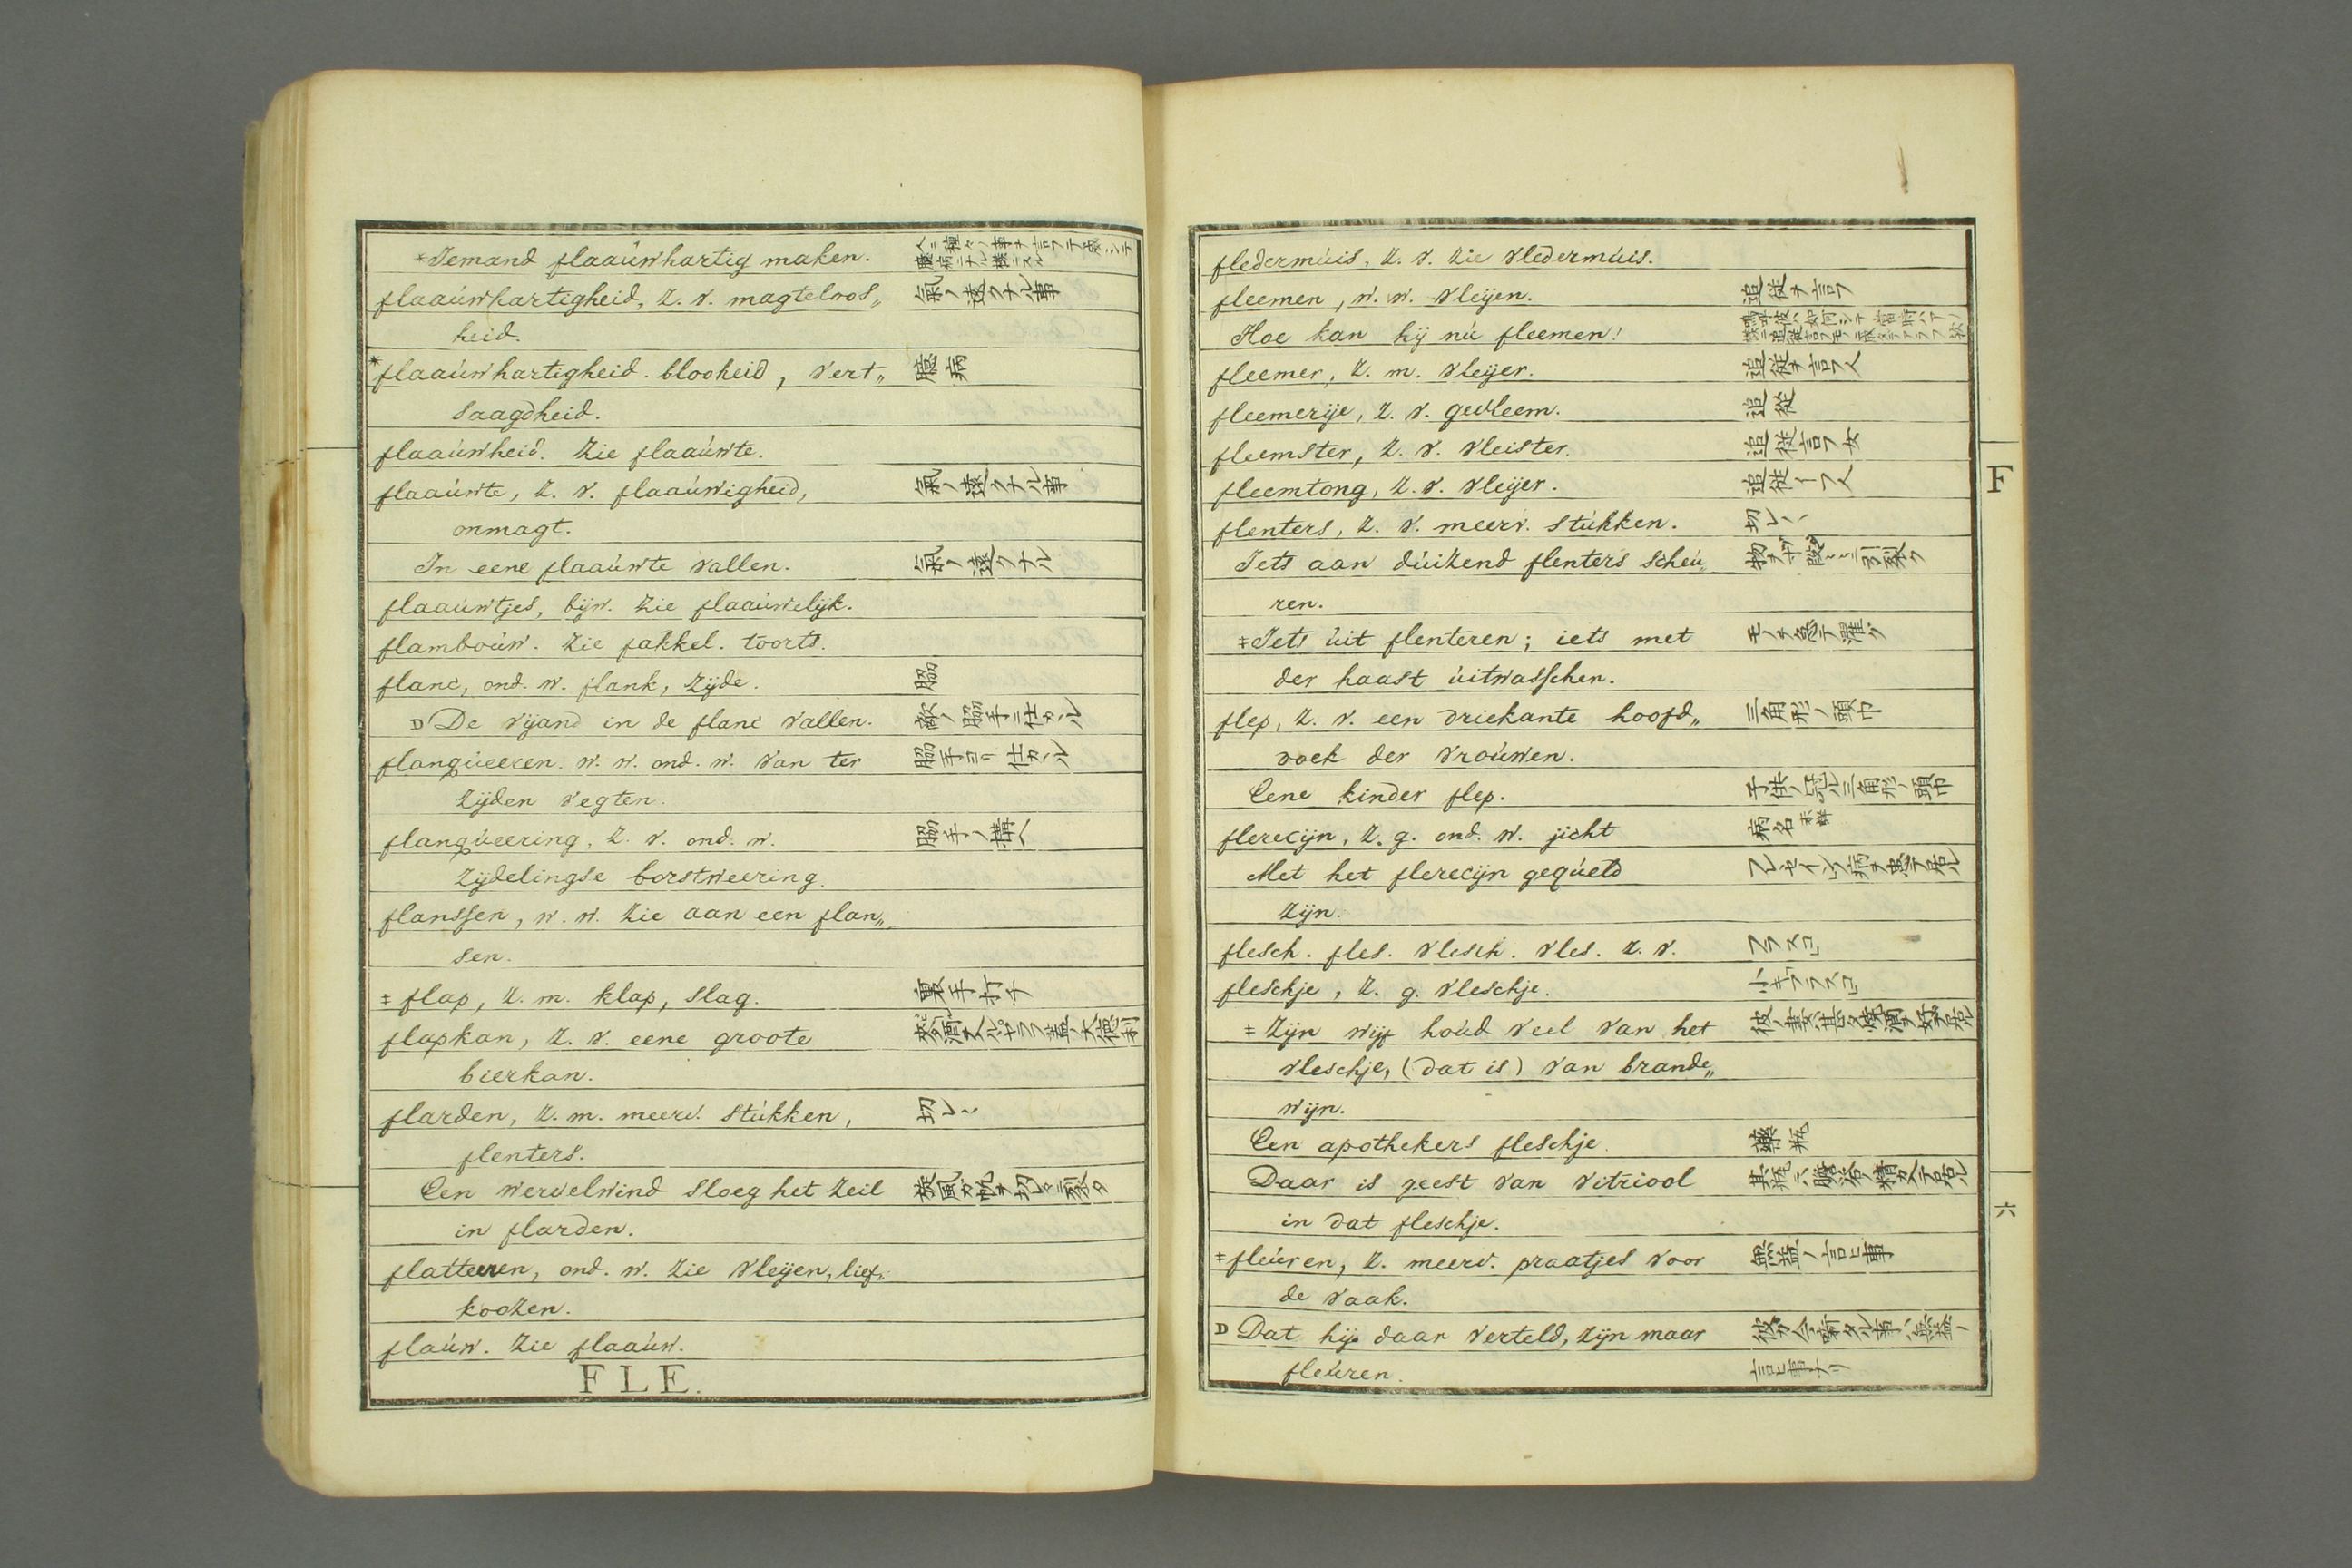 *Iemand flaaúwhartig maken.
flaaúwhartigheid, z. v. magteloos„ 氣ノ遠クナル事
heid.
*flaaúwhartigheid. blooheid, vert„ 臆病
saagdheid.
flaaúwheid. zie flaaúwte.
flaaúwte, z. v. flaaúwigheid, 氣ノ遠クナル事
onmagt.
In eene flaaúwte vallen. 氣ノ遠クナル
flaaúwtjes, bijw. zie flaaúwelijk.
flamboúw. zie fakkel. toorts.
flanc, ond. w. flank, zijde. 脇
D De vijand in de flanc vallen. 敵ノ脇手ニ仕カル
flanqúeeren. w. w. ond. w. van ter 脇手ヨリ仕カル
zijden vegten.
flanqúeering, z. v. ond. w. 脇手ノ構ヘ
zijdelingse borstweering.
flanssen, w. w. zie aan een flan„
sen.
‡ flap, z. m. klap, slag. 裏手打チ
flapkan, z. v. eene groote
bierkan.
flarden, z. m. meerv. stúkken, 切レ〻
flenters.
Een wervelwind sloeg het zeil 旋風カ帆ヲ切レ〻ニ裂タ
in flarden.
flatteeren, ond. w. zie vleijen, lief„
koozen.
flaúw. zie flaaúw.
FLE.
fledermúis, z. v. zie vledermúis.
fleemen, w. w. vleijen. 追従ヲ言フ
Hoe kan hij nú fleemen!
fleemer, z. m. vleijer. 追従ヲ言フ人
fleemerije, z. v. gevleem. 追従
fleemster, z. v. vleister. 追従言フ女
fleemtong, z. v. vleijer. 追従イフ人
flenters, z. v. meerv. stúkken. 切レ〻
Iets aan dúizend flenters scheú„
ren.
‡Iets úit flenteren; iets met モノヲ急テ濯グ
der haast úitwasschen.
flep, z. v. een driekante hoofd„ 三角形ノ頭巾
doek der vroúwen.
Eene kinder flep. 子供ノ冠ル三角形ノ頭巾
flerecijn, z. g. ond. w. jicht 病名
Met het flerecijn geqúeld
zijn.
flesch. fles. vlesch. vles. z. v. フラスコ
fleschje, z. g. vleschje. 小キフラスコ
‡ Zijn wijf hoúd veel van het 彼ノ妻ハ甚タ焼酒ヲ好テ居ル
vleschje, (dat is) van brande„
wijn.
Een apothekers fleschje. 藥瓶
Daar is geest van vitriool 其瓶ニハ膽礬ノ精カ入テ居ル
in dat fleschje.
‡fleúren, z. meerv. praatjes voor 無益ノ言ヒ事
de vaak.
D Dat hij daar verteld, zijn maar 彼カ今噺タル事ハ無益ノ
fleúren. 言ヒ事ナリ
F
六